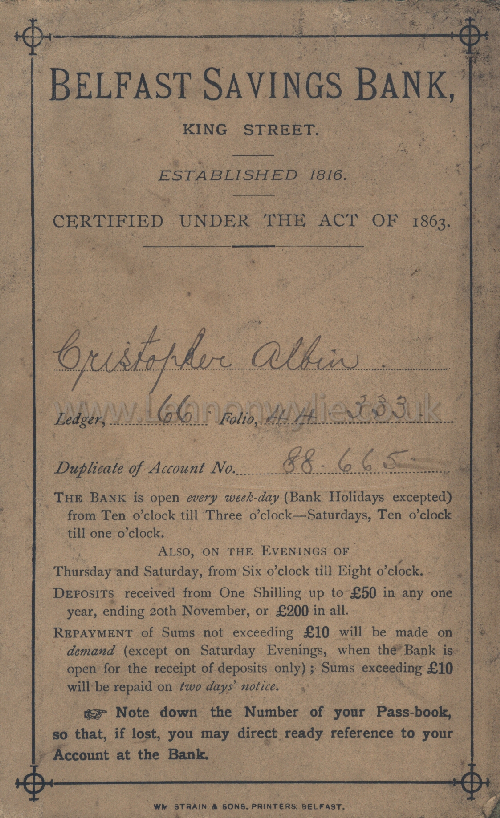 BELFAST SAVINGS BANK,
KING STREET.
ESTABLISHED 1816.
CERTIFIED UNDER THE ACT OF 1863.
Cristopher Albin.
www.lennonwylie.co.uk
Ledger, 66 Folio, 333.
Duplicate of Account No. 88665
THE BANK is open every week-day (Bank Holidays excepted)
from Ten o'clock till Three o'clock—Saturdays, Ten o'clock
till one o'clock.
ALSO, ON THE EVENINGS OF
Thursday and Saturday, from Six o'clock till Eight o'clock.
DEPOSITS received from One Shilling up to £50 in any one
year, ending 20th November, or £200 in all.
REPAYMENT of Sums not exceeding £10 will be made on
demand (except on Saturday Evenings, when the Bank is
open for the receipt of deposits only) ; Sums exceeding £10
will be repaid on two days' notice.
☞ Note down the Number of your Pass-book,
so that, if lost, you may direct ready reference to your
Account at the Bank.
WM STRAIN & SONS, PRINTERS, BELFAST.